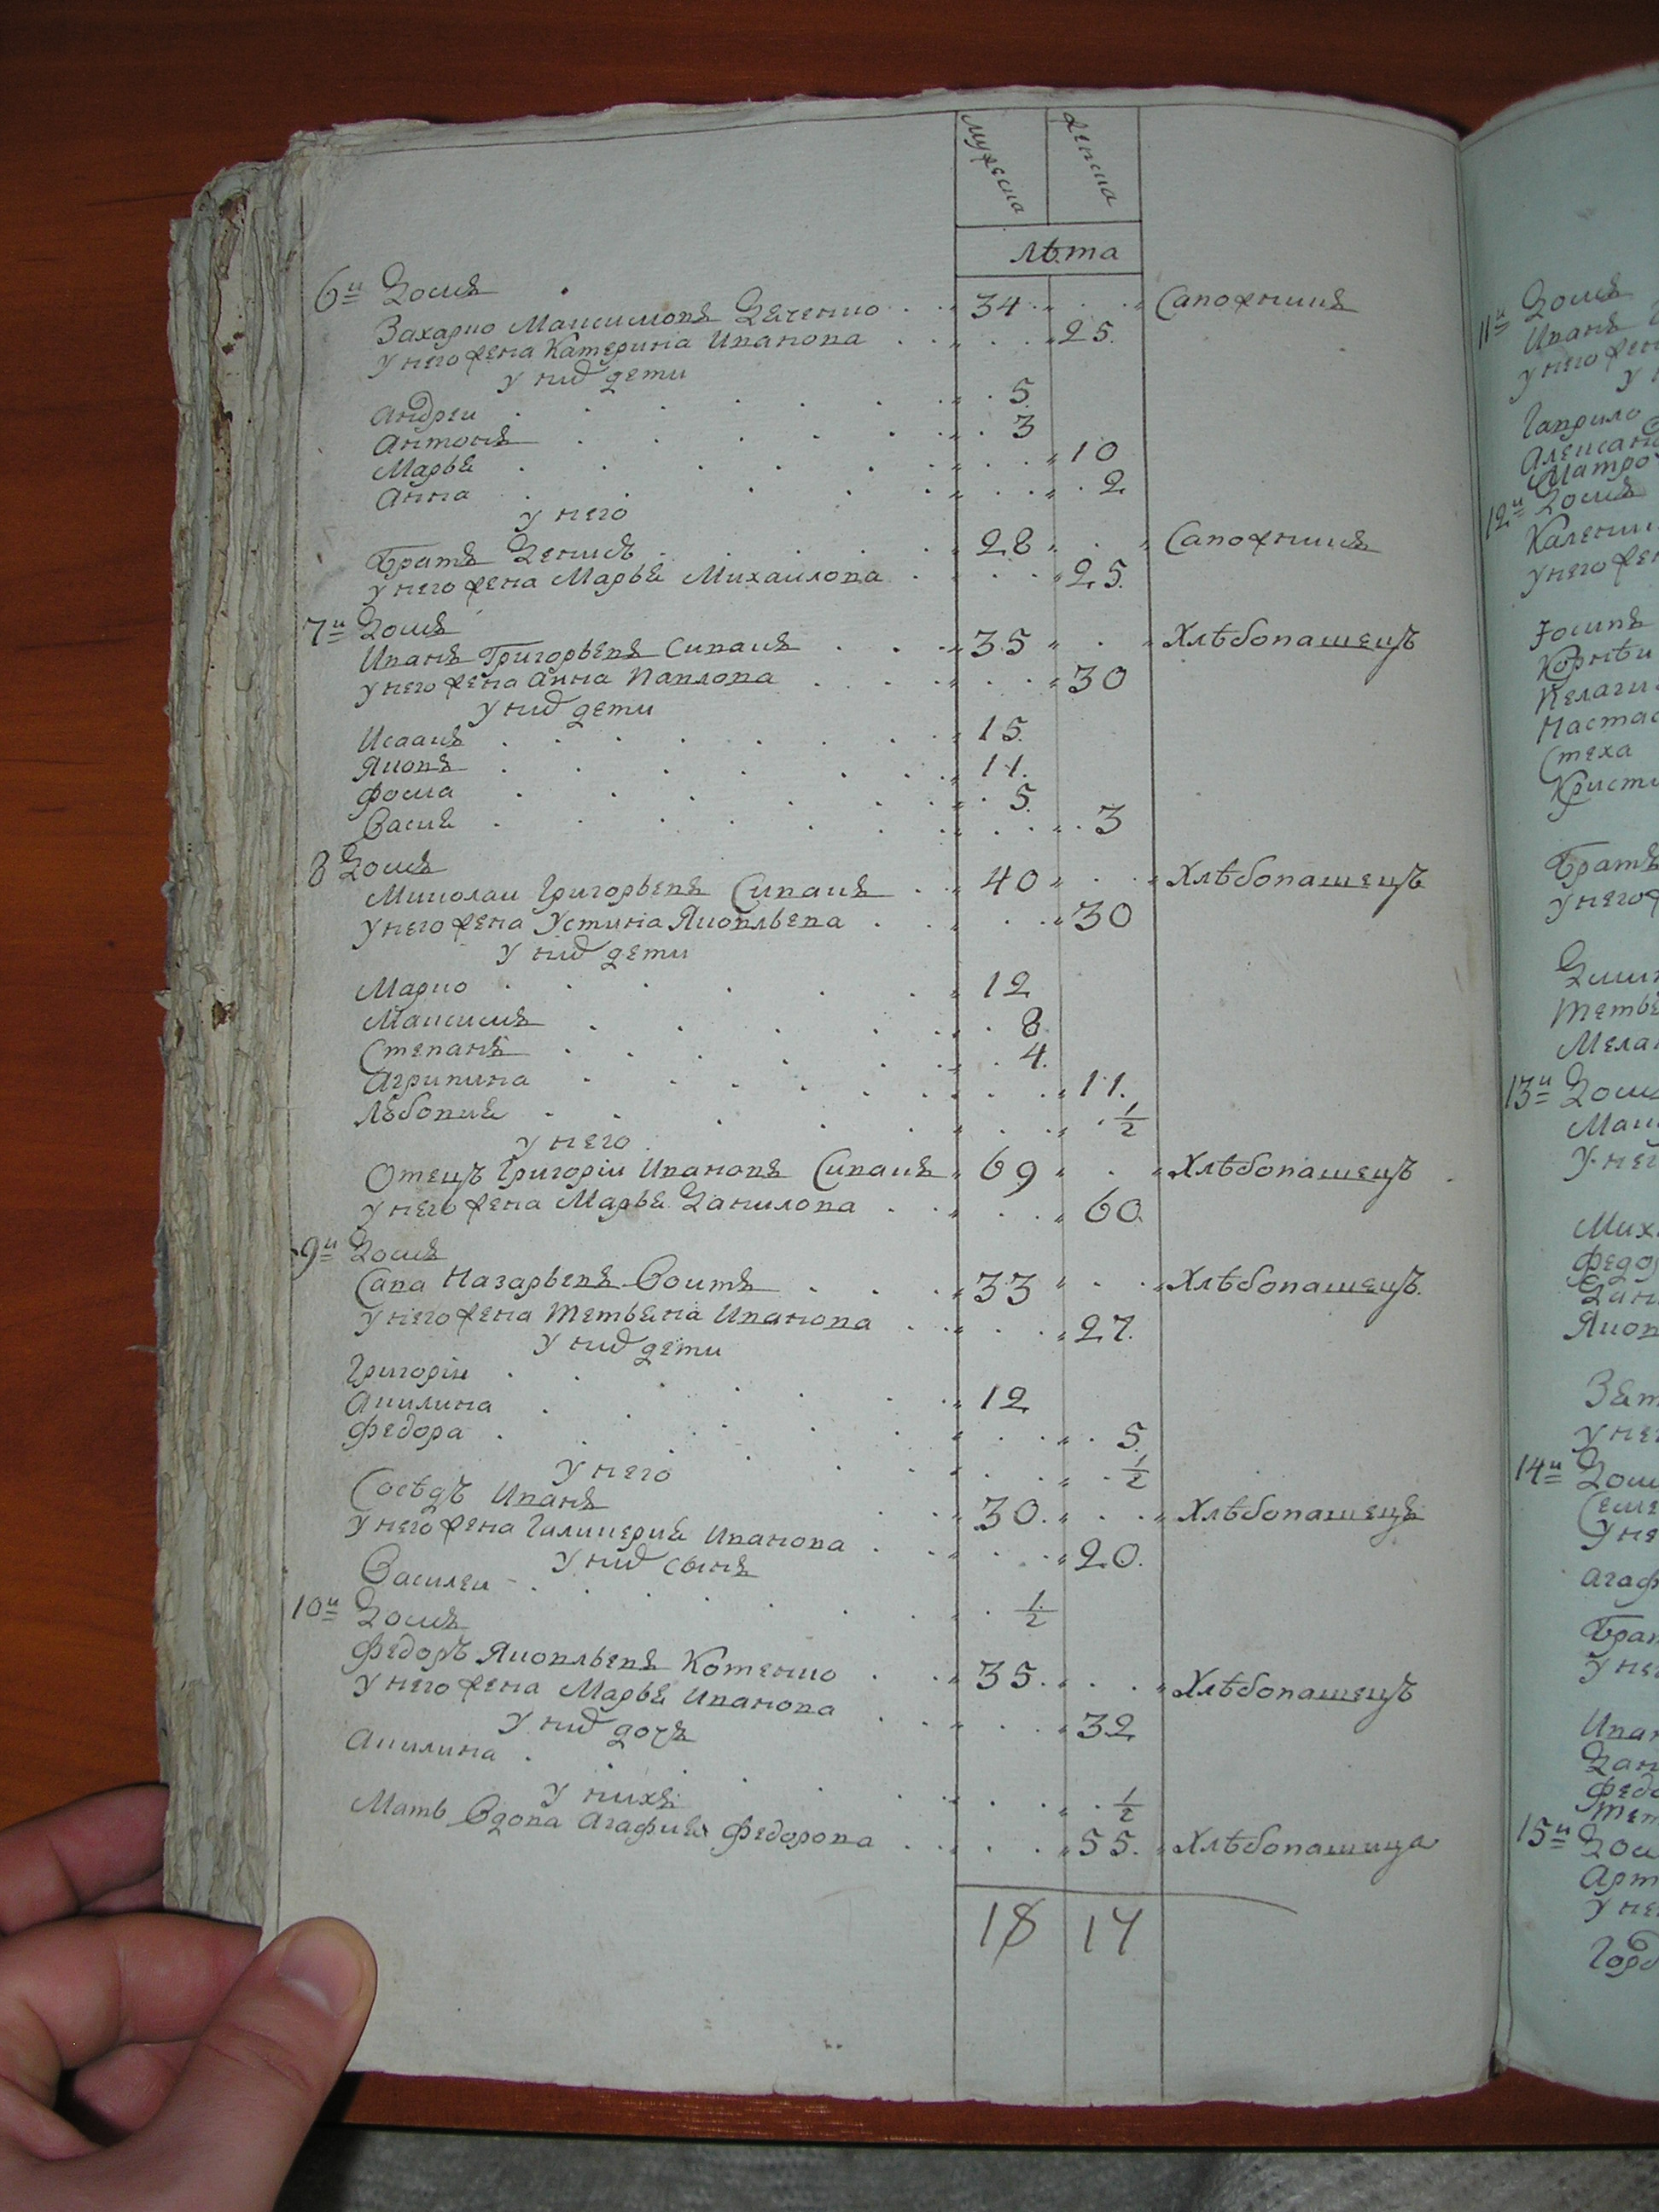 Мужеска Женска
Лѣта
6й Домъ
Захарко Максимовъ Дяченко 34 Сапожникъ
У него жена Катерина Иванова 25
У них дети
Андреи 5
Антонъ 3
Марья 10
Анна 2
У него
Братъ Денисъ 28 Сапожникъ
У него жена Марья Михаилова 25
7й Домъ
Иванъ Григорьевъ Сивакъ 35 Хлѣбопашецъ
У него жена Анна Павлова 30
У них дети
Исаакъ 15
Яковъ 11
Фома 5
Васия 3
8 Домъ
Миколаи Григорьевъ Сивакъ 40 Хлѣбопашецъ
У него жена Устина Яковльева 30
У них дети
Марко 12
Максимъ 8
Степанъ 4
Агрипина 11
Любовия 1/2
У него
Отецъ Григоріи Ивановъ Сивакъ 69 Хлѣбопашецъ
У него жена Марья Данилова 60
9й Домъ
Сава Назарьевъ Воитъ 33 Хлѣбопашецъ
У него жена Тетьяна Иванова 27
У них дети
Григоріи 12
Акилина 5
Федора 1/2
У него
Сосѣдъ Иванъ 30 Хлѣбопашецъ
У него жена Гликерия Иванова 20
У них сынъ
Василеи 1/2
10й Домъ
Федоръ Яковльевъ Котенко 35 Хлѣбопашецъ
У него жена Марья Иванова 32
У них дочь
Акилина 1/2
У нихъ
Мать Вдова Агафия Федорова 55 Хлѣбопашица
18 14
11й Домъ
Иванъ
У него жен
Гаврило
Алексан
Матро
12й Домъ
Каленик
У него жен
Іосипъ
Корнѣи
Пелаги
Настас
Стеха
Кристи
Братъ
У него ж
Дмит
Тетья
Мела
13й Дом
Мак
У нег
Мих
Федо
Дан
Яков
У не
14й Дом
Семе
У не
Агаф
Брат
У не
Иван
Дан
Федо
Тет
15й До
Арт
У не